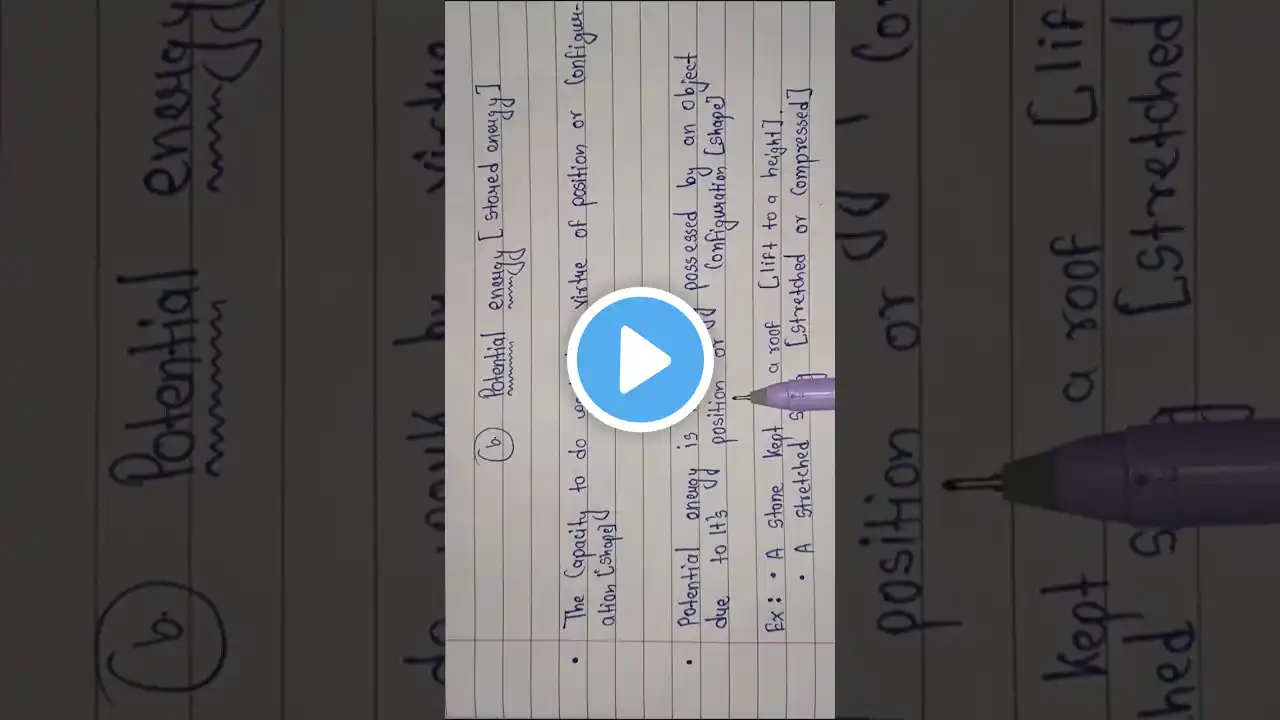 (b.) Potential energy [stored energy]
• The Capacity to do virtue of position or Configur-
ation [shape]
• Potential energy is possessed by an object
due to It's position or Configuration [shape]
Ex: • A stone kept a roof [lift to a height].
• A stretched [stretched or compressed]